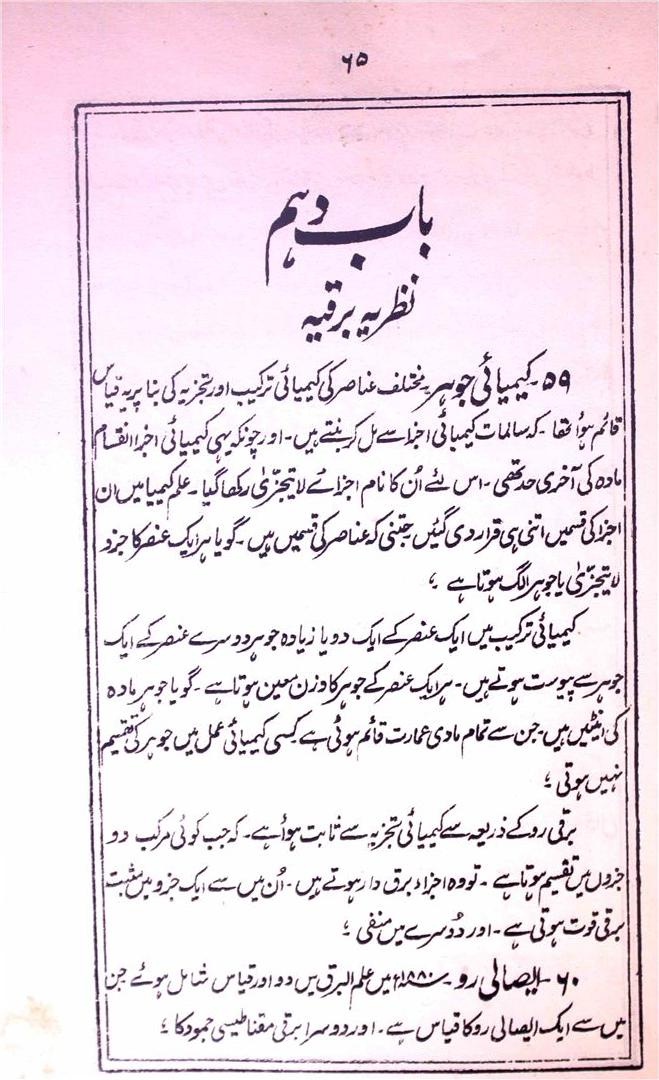 ۶۵
باب دہم
نظریہ برقیہ
۵۹-کیمیائی جوہر۔ مختلف عناصر کی کیمیائی ترکیب اور تجزیہ کی بنا پر یہ قیاس
قائم ہوُا تھا۔ کہ سالمات کیمیائی اجزا سے مل کر بنتے ہیں۔ اور چونکہ یہی کیمیائی اجزا انقسام
مادہ کی آخری حد تھی۔ اس لئے اُن کا نام اجزائے لایتجزّیٰ رکھا گیا۔ علم کیمیا میں ان
اجزا کی قسمیں اتنی ہی قرار دی گئیں جتنی کہ عناصر کی قسمیں ہیں۔ گویا ہر ایک عنصر کا جزو
لایتجزّیٰ یا جوہر الگ ہوتا ہے ؛
کیمیائی ترکیب میں ایک عنصر کے ایک دو یا زیادہ جوہر دوسرے عنصر کے ایک
جوہر سے پیوست ہوتے ہیں۔ ہر ایک عنصر کے جوہر کا وزن معین ہوتا ہے۔ گویا جوہر مادہ
کی اینٹیں ہیں۔ جن سے تمام مادی عمارت قائم ہوئی ہے کسی کیمیائی عمل میں جوہر کی تقسیم
نہیں ہوتی ؛
برقی رو کے ذریعہ سے کیمیائی تجزیہ سے ثابت ہوُا ہے۔ کہ جب کوئی مرکب دو
جزوں میں تقسیم ہوتا ہے۔ تو وہ اجزاء برق دار ہوتے ہیں۔ اُن میں سے ایک جزو میں مثبت
برقی قوت ہوتی ہے۔ اور دُوسرے میں منفی ؛
۶۰-ایصالی رو۔ ۱۸۸۰ء میں علم البرق یں دو اور قیاس شامل ہوئے جن
میں سے ایک ایصالی رو کا قیاس ہے۔ اور دوسرا برقی مقناطیسی جمود کا ؛